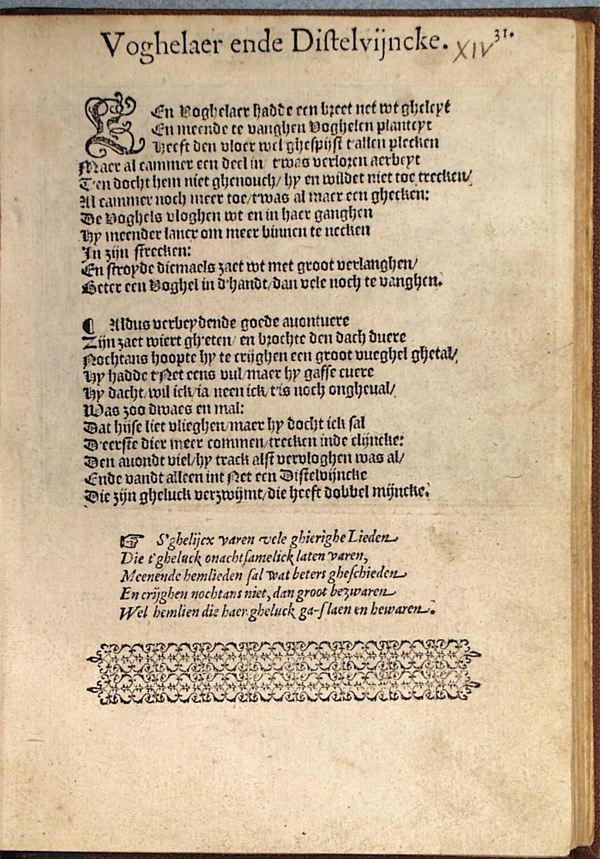 Voghelaer ende Distelvijncke.
XIV
31.
EEn Voghelaer hadde een breet net wt gheleyt
En meende te vanghen Voghelen planteyt
Heeft den vloer wel ghespijst t'allen plecken
Maer al cammer een deel in/ t'was verloren aerbeyt
T'en docht hem niet ghenouch/ hy en wildet niet toe trecken/
Al cammer noch meer toe/ t'was al maer een ghecken:
De Voghels vloghen wt en in haer ganghen
Hy meender lancx om meer binnen te necken
In zijn strecken:
En stroyde diemaels zaet wt met groot verlanghen/
Beter een Voghel in d'handt/ dan vele noch te vanghen.
¶ Aldus verbeydende goede avontuere
Zijn zaet wiert gh'eten/ en brochte den dach duere
Nochtans hoopte hy te crijghen een groot vueghel ghetal/
Hy hadde t'Net eens vul/ maer hy gaffe cuere
Hy dacht/ wil ick/ ia neen ick/ t'is noch ongheval/
Was zoo dwaes en mal:
Dat hijse liet vlieghen/ maer hy docht ick sal
D'eerste dier meer commen/ trecken inde clijncke:
Den auondt viel/ hy track alst vervloghen was al/
Ende vandt alleen int Net een Distelvijncke
Die zijn gheluck verzwijmt/ die heeft dobbel mijncke.
☞ S'ghelijcx varen vele ghierighe Lieden
Die t'gheluck onachtsamelick laten varen,
Meenende hemlieden sal wat beters gheschieden
En crijghen nochtans niet, dan groot bezwaren
Wel hemlien die haer gheluck ga-slaen en bewaren.